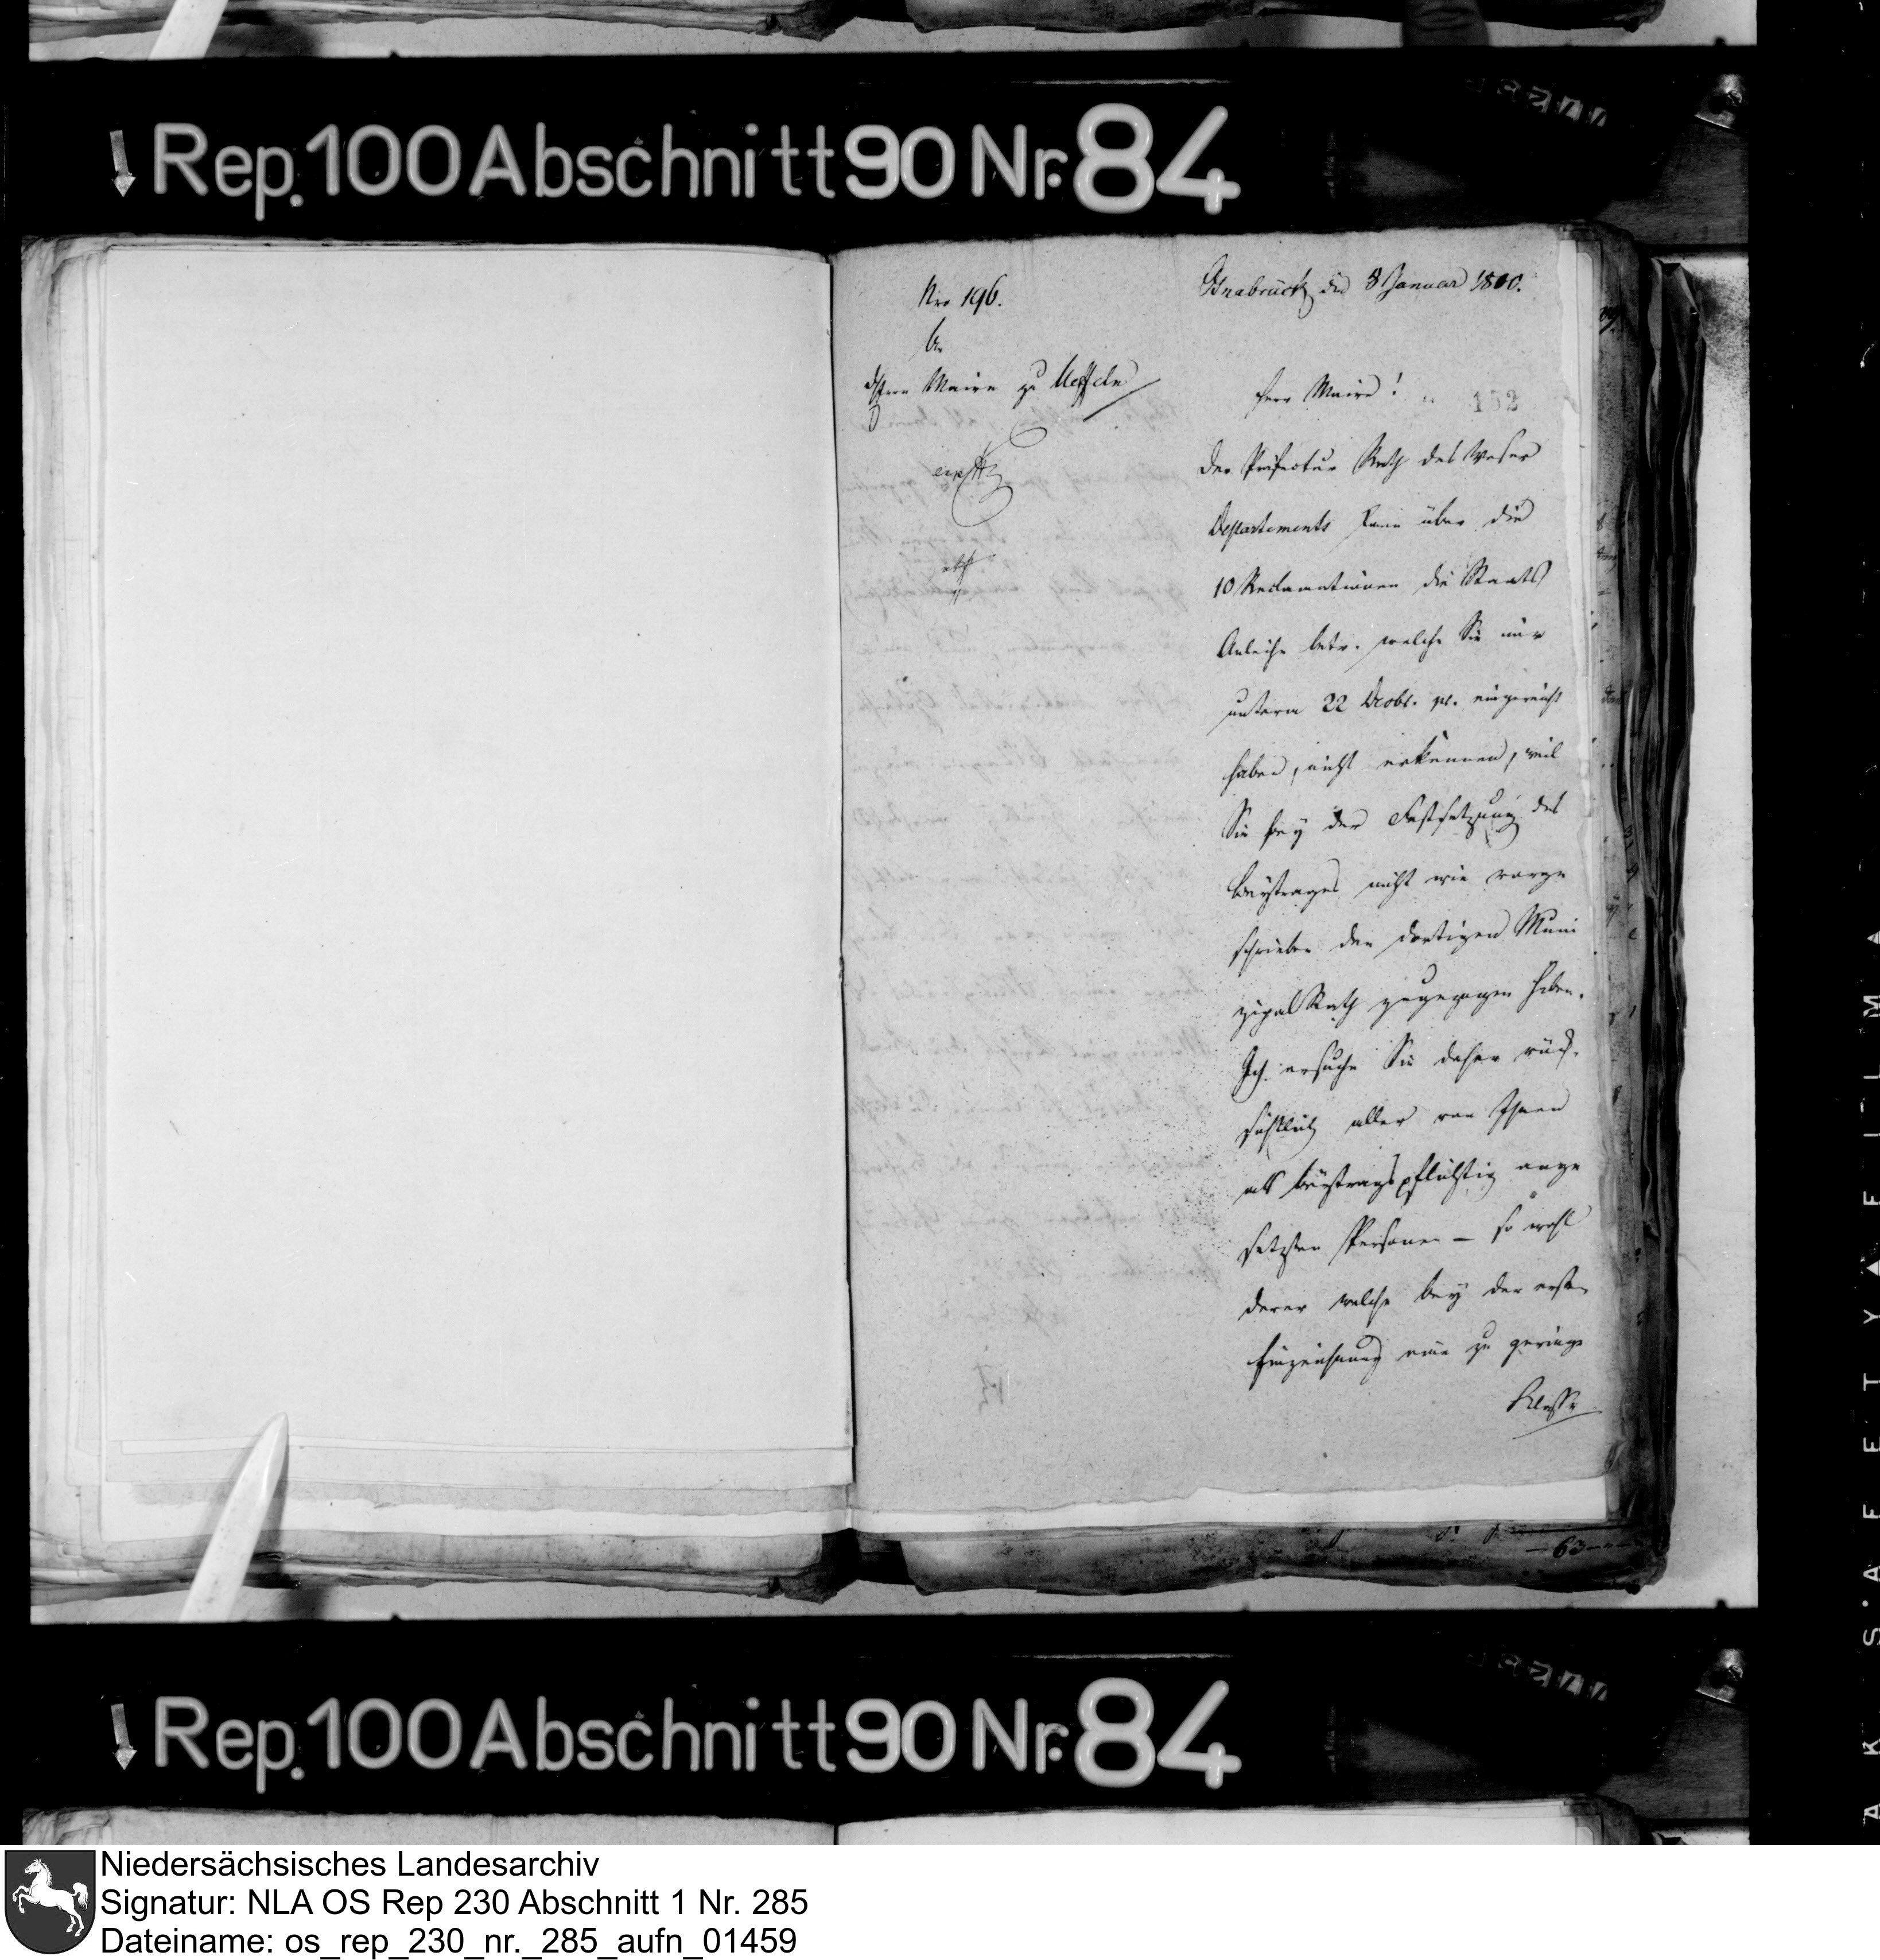 Rep. 100 Abschnitt 90 Nr: 84
Nro 196.
An
Herrn Maire zu Ueffeln
exp
abs
Osnabrück den 8 Januar 1810.
Herr Maire!
152
Der Präfectur Rath des Weser
Departements kann über die
10 Reclamationen die Staats
Anleihe betr. welche Sie mir
unterm 22 Decbr. pr. eingereicht
haben, nicht erkennen, weil
Sie bey der Festsetzung des
Beytrages nicht wie vorge
schrieben den dortigen Muni
zipal Rath zugezogen haben.
Ich ersuche Sie daher rück-
sichtlich aller von Ihnen
als beytragspflichtig ange
setzten Personen – so wohl
derer welche bey der ersten
Einzeichnung eine zu geringe
Klasse
63
Rep. 100 Abschnitt 90 Nr: 84
AK S·A F E T Y ▲ F I L M ▲
Niedersächsisches Landesarchiv
Signatur: NLA OS Rep 230 Abschnitt 1 Nr. 285
Dateiname: os_rep_230_nr._285_aufn_01459